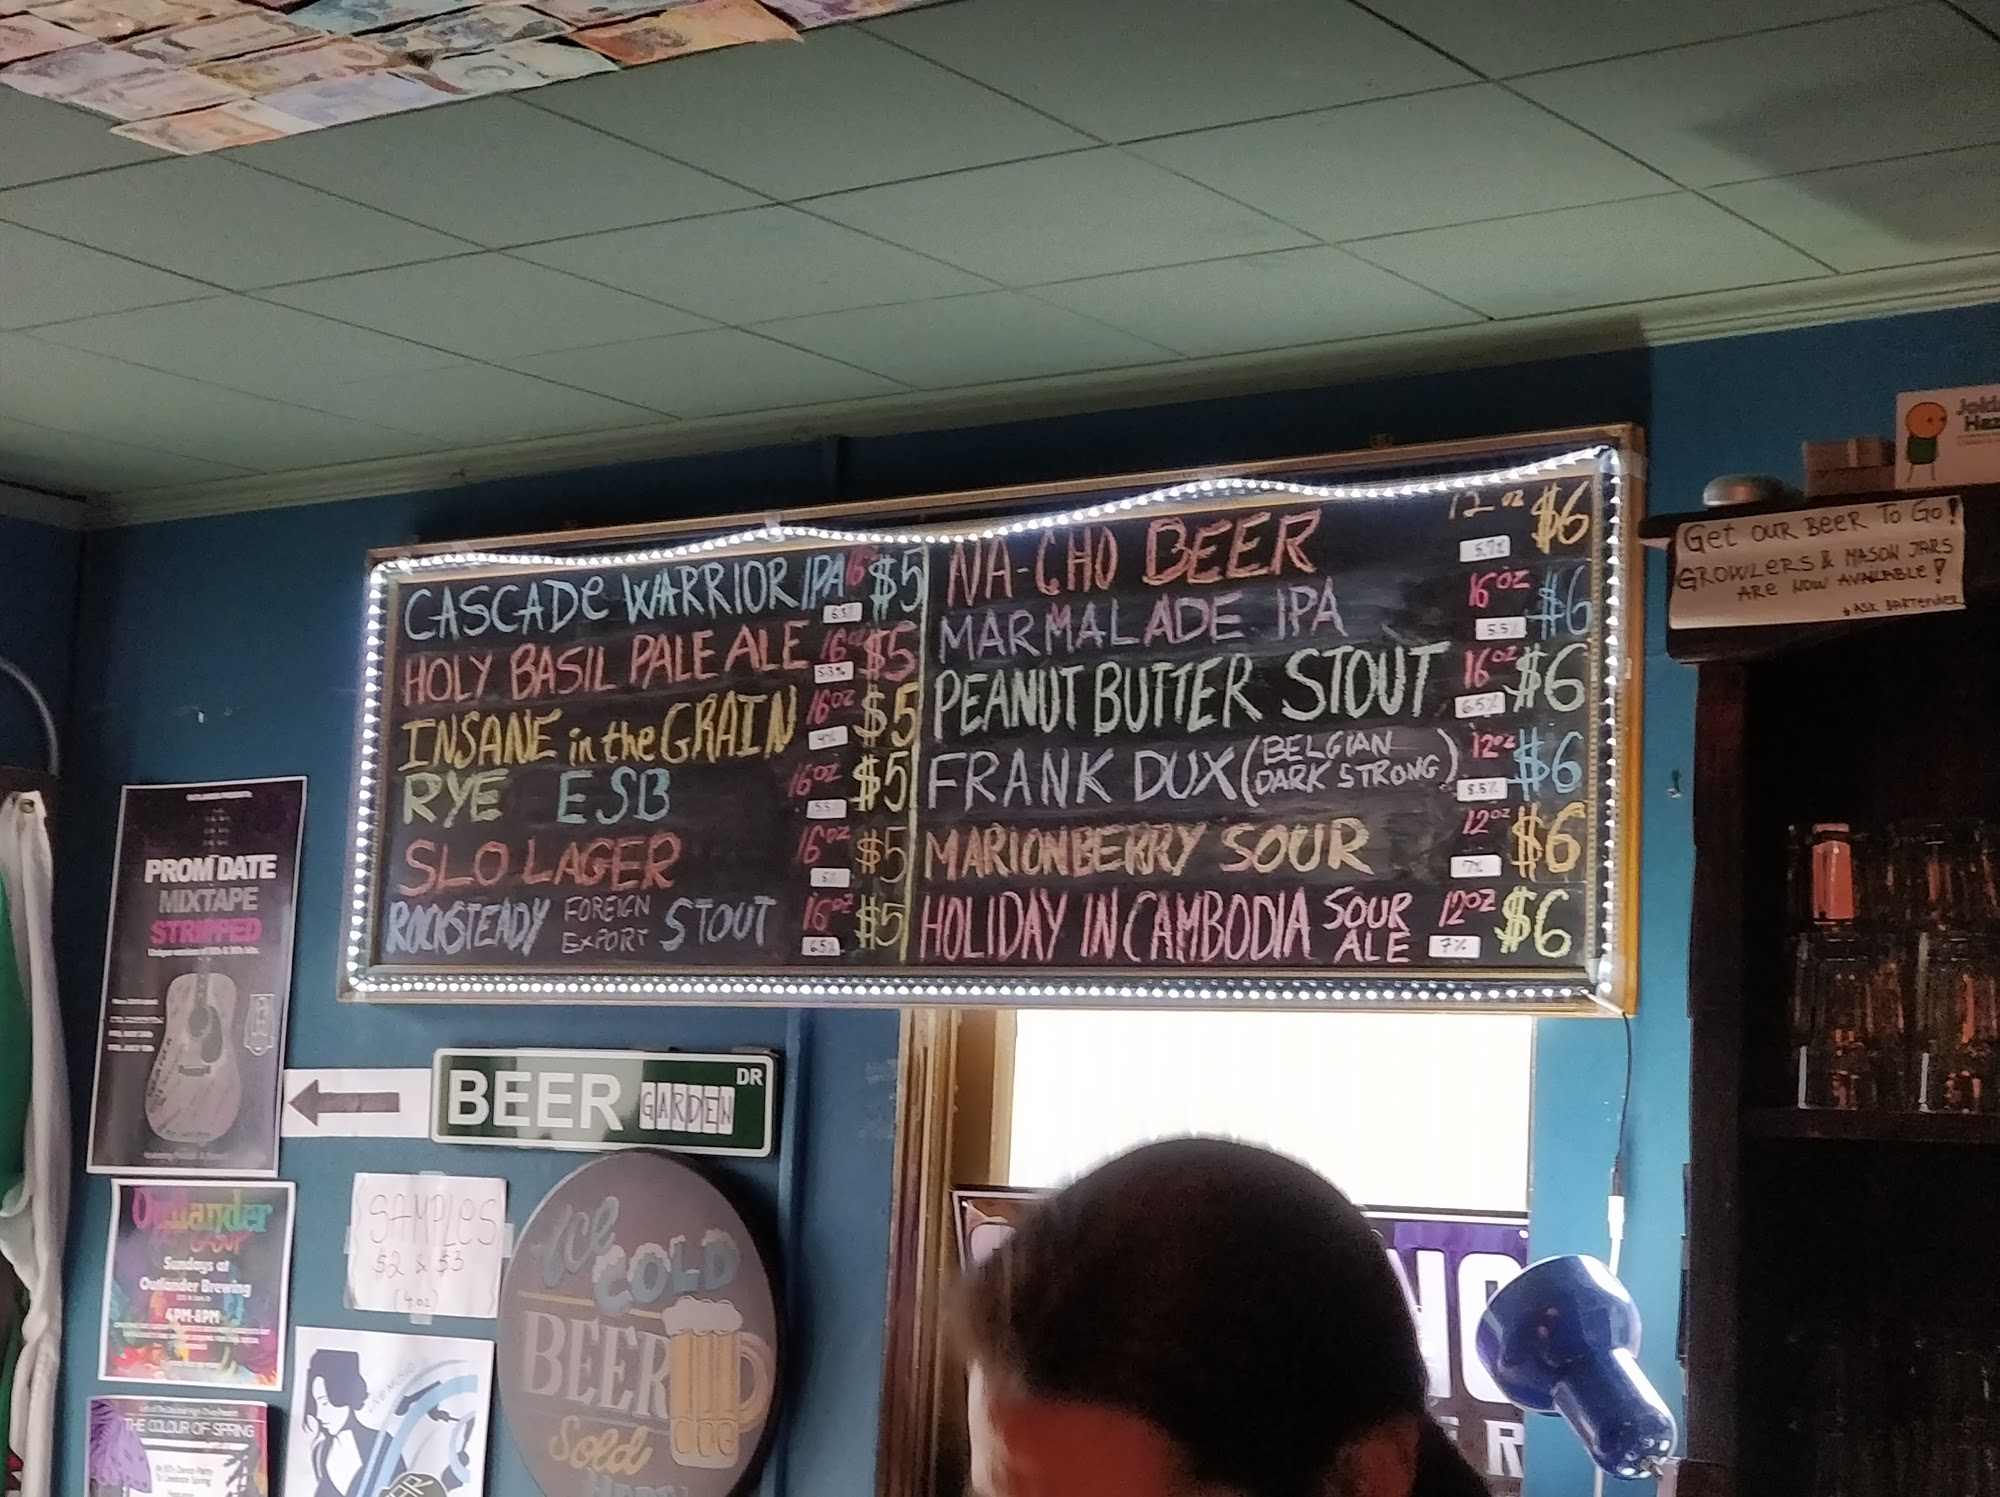 CASCADE WARRIOR IPA 16oz $5
6.3%
HOLY BASIL PALE ALE 16oz $5
5.3%
INSANE in the GRAIN 16oz $5
4%
RYE ESB 16oz $5
5.5%
SLO LAGER 16oz $5
5%
ROCKSTEADY FOREIGN EXPORT STOUT 16oz $5
6.5%
NA-CHO BEER 12oz $6
5.7%
MARMALADE IPA 16oz $6
5.5%
PEANUT BUTTER STOUT 16oz $6
6.5%
FRANK DUX (BELGIAN DARK STRONG) 12oz $6
8.5%
MARIONBERRY SOUR 12oz $6
7%
HOLIDAY IN CAMBODIA SOUR ALE 12oz $6
7%
Get our Beer To Go!
GROWLERS & MASON JARS
ARE NOW AVAILABLE!
ASK BARTENDER
PROM DATE
MIXTAPE
STRIPPED
BEER GARDEN DR
Outlander
Sundays at
Outlander Brewing
4PM-8PM
SAMPLES
$2 & $3
(4oz)
Ice
COLD
BEER
Sold
THE COLOUR OF SPRING